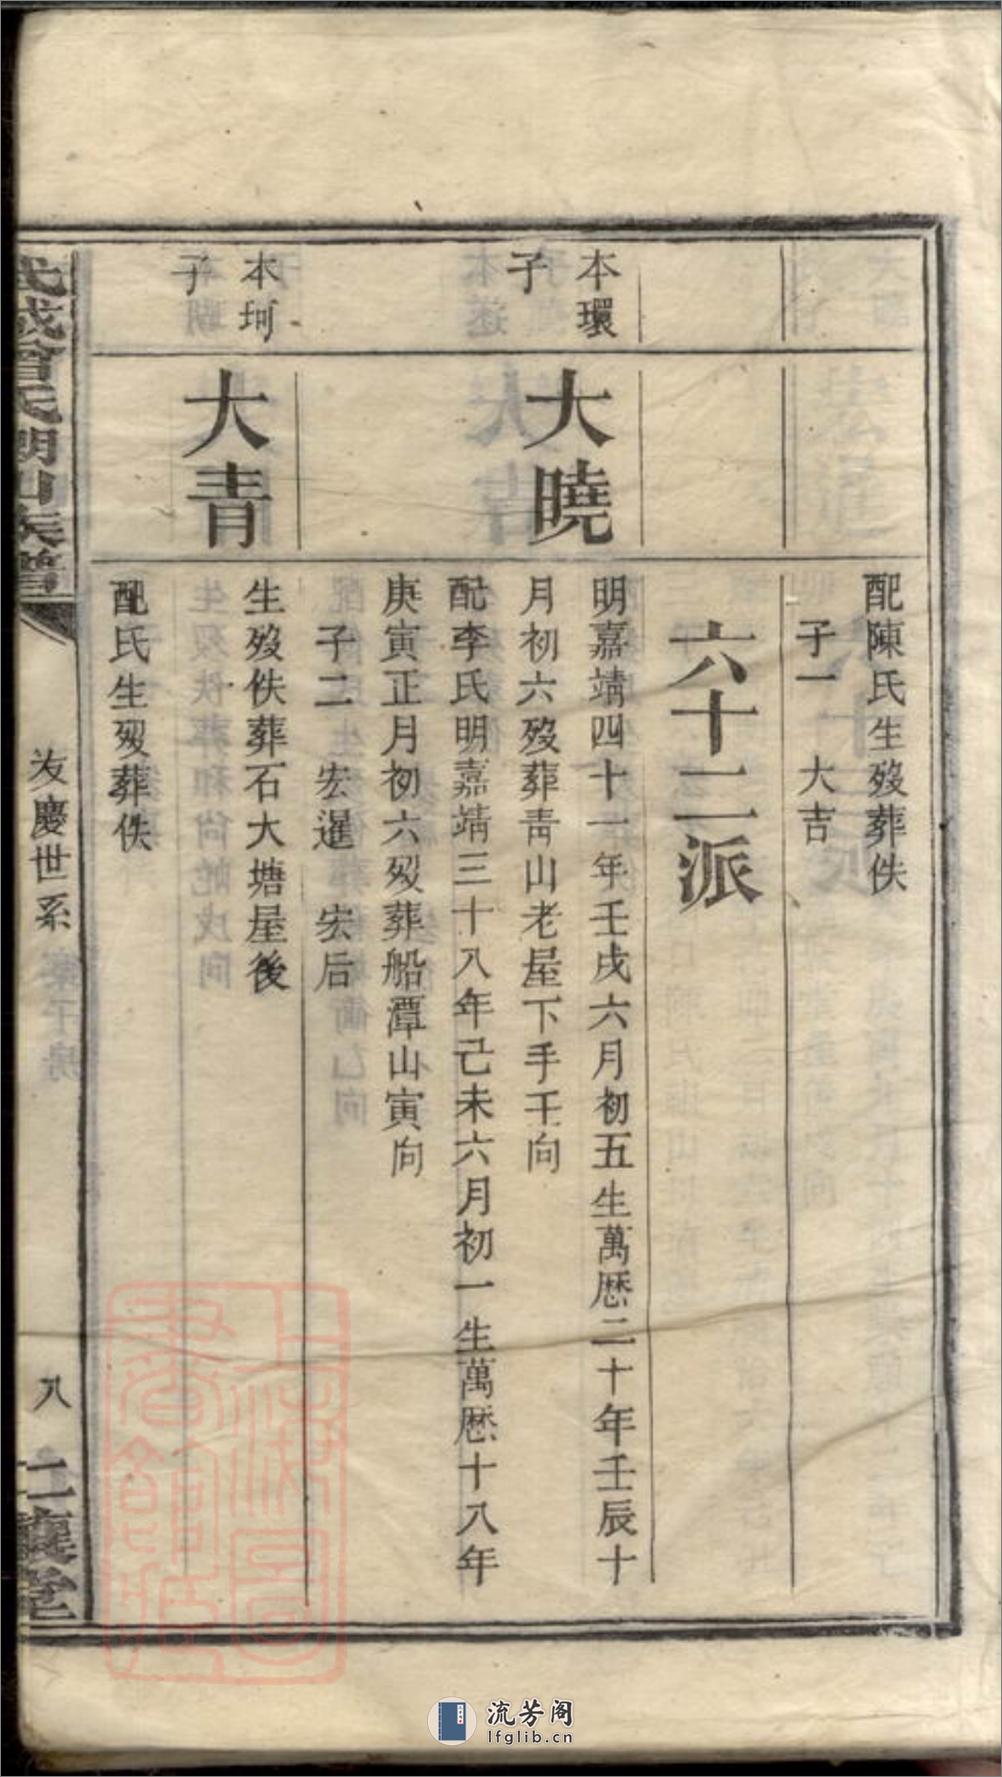 配陳氏生歿葬佚
子一　大吉
六十二派
本環
子
大曉
明嘉靖四十一年壬戌六月初五生萬歷二十年壬辰十
月初六歿葬靑山老屋下手壬向
配李氏明嘉靖三十八年己未六月初一生萬歷十八年
庚寅正月初六歿葬船潭山寅向
子二　宏暹　宏后
本珂
子
大青
生歿佚葬石大塘屋後
配氏生歿葬佚
武城曾氏明山族譜
友慶世系
八
上海圖
書館藏
流芳阁
lfglib.cn